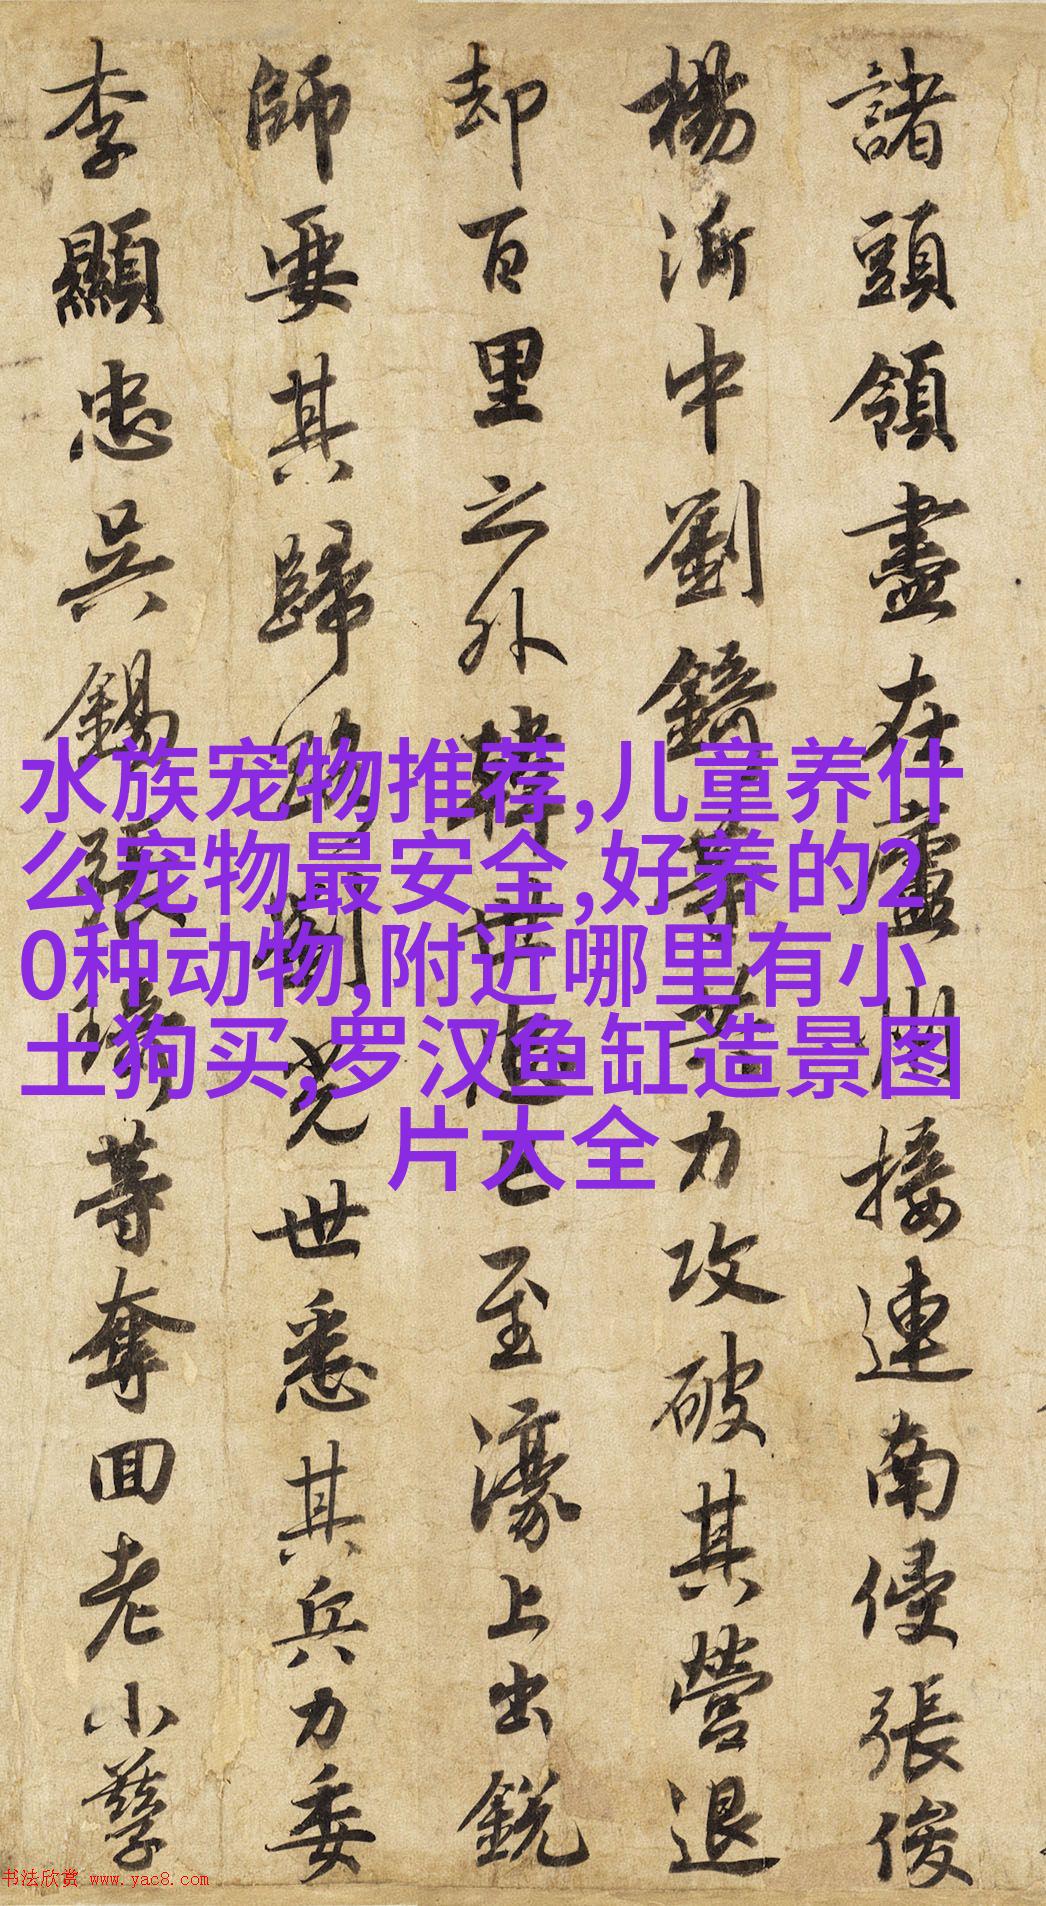 諸頭領盡在廬州接連南侵張俊
楊沂中劉錡等共力攻破其營退
却百里之外韓世忠已至濠上出銳
師要其歸路劉光世悉其兵力委
李顯忠吳錫張琦等奪回老小孳
水族宠物推荐,儿童养什
么宠物最安全,好养的2
0种动物,附近哪里有小
土狗买,罗汉鱼缸造景图
片大全
书法欣赏 www.yac8.com